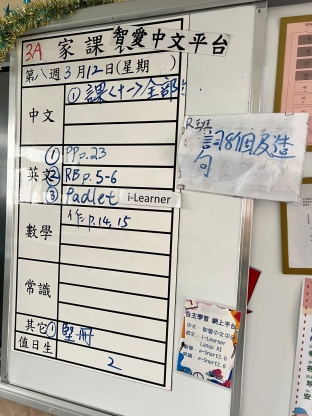 3A 家課 智愛中文平台
第八週3月12日(星期 )
中文 ① 課<十一>全部
R班
詞18個及造
句
① PP p.23
英文 ② RB p.5-6
③ Padlet i-Learner
數學 作 p.14, 15
常識
其它 ① 壁冊
值日生 2
自主學習 網上平台
中文: 智愛中文平台
英文: i-Learner